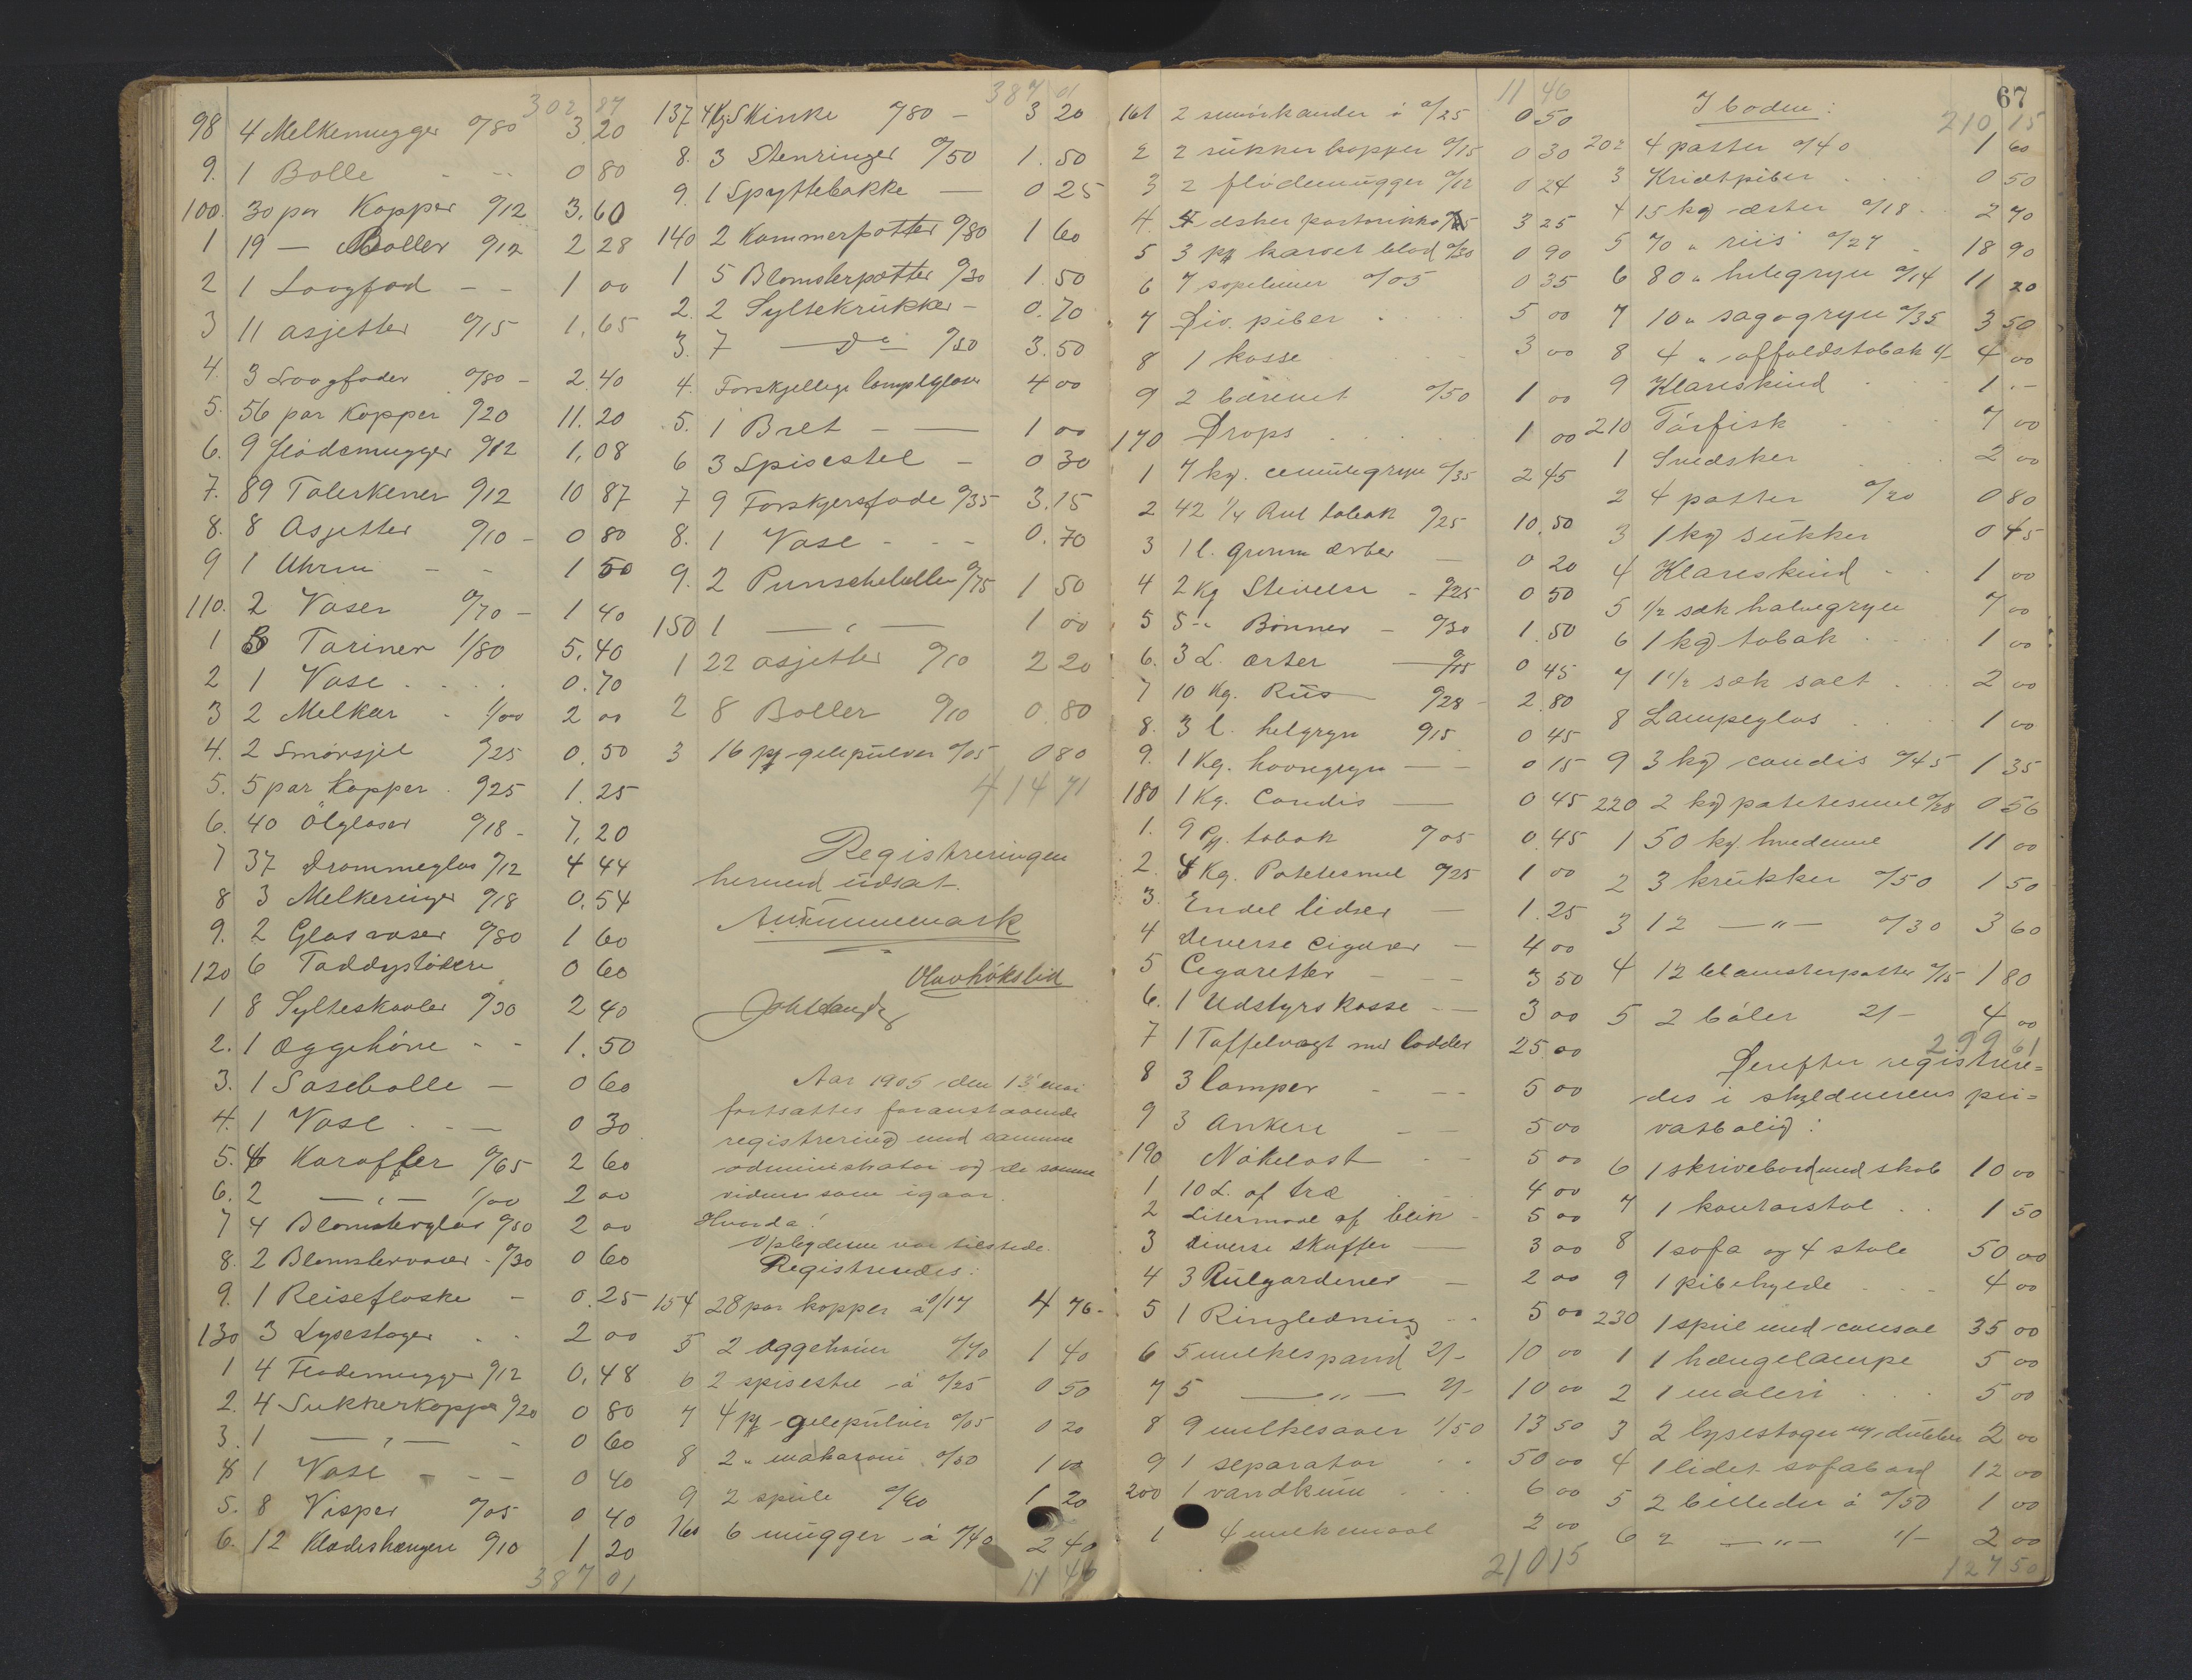 302 87
98 4 Melkemugger 0/80 3.20
9. 1 Bolle - -- 0 80
100. 30 par Kopper 0/12 3,60
1 19 — Boller 0/12 2 28
2 1 Laagfad - - 1 00
3 11 asjetter 0/15 1,65
4. 3 Laagfader 0/80 - 2.40
5. 56 par Kopper 0/20 11.20
6. 9 flødemugger 0/12 1,08
7. 89 Talerkener 0/12 10 87
8. 8 Asjetter 0/10 - 0 80
9 1 Uhrm - - 1 50
110. 2 Vaser 0/70 - 1 40
1 3 Tariner 1/80 5,40
2 1 Vase . . . . 0.70
3 2 Melkar - 1/00 2 00
4. 2 Smørsjel 0/25 0.50
5. 5 par Kopper . 0/25 1.25
6. 40 Ølglaser 0/18 - 7,20
7 37 Drammeglas 0/12 4 44
8 3 Melkeringer 0/18 0.54
9. 2 Glas vaser 0/80 1 60
120 6 Toddystökere 0 60
1 8 Sylteskaaler 0/30 2 40
2. 1 Æggehöne - - 1.50
3. 1 Sasebolle — 0 60
4. 1 Vase . - — 0 30
5. 4 Karafler 0/65 2 60
6. 2 — " — 1/00 2 00
7 4 Blomsterglas 0/50 2 00
8. 2 Blomstervaser - 0/30 0 60
9. 1 Reiseflaske - 0.25
130 3 Lysestager . . 2 00
1 4 Flødemugger 0/12 0,48
2. 4 Sukkerkopper 0/20 0 80
3. 1 — " — - 0 60
4 1 Vase - - - 0 40
5. 8 Visper 0/05 0 40
6. 12 Klædeshængere 0/10 1 20
387 01
387 01
137 4 Kg. Skinke 0/80 - 3 20
8. 3 Stenringer 0/50 1.50
9. 1 Spyttebakke — 0 25
140 2 Kammerpotter 0/80 1 60
1 5 Blomsterpotter 0/30 1.50
2. 2 Syltekrukker - 0.70
3. 7 — Do — 0/50 3.50
4. Forskjellige lampeglase 4 00
5. 1 Bret - — 1 00
6 3 Spisestel - 0 30
7 9 Forskjersfade 0/35 3.15
8. 1 Vase - - - 0.70
9. 2 Punscheboller 0/75 1 50
150 1 — " — 1 00
1 22 asjetter 0/10 2 20
2 8 Boller 0/10 0.80
3 16 pk gelepulver 0/05 0 80
414 71
Registreringen
hermed udsat.
Olavhökslid
Aar 1905 den 13 mai
fortsattes foranstaaende
registrering med samme
administrator og de samme
vidner som igaar.
Hvorda!
Oplyderne var tilstede.
Registreredes:
154 28 par kopper à 0/17 4 76-
5 2 æggehöner 0/70 1 40
6 2 spisestel à 0/25 0 50
7 4 pk gelepulver 0/05 0 20
8 2 " makaroni 0/50 1 00
9 2 speile 0/60 1 20
160 6 mugger à 0/40 2 40
11 46
11 46
161 2 smörkander à 0/25 0 50
2 2 sukkerkopper 0/15 0 30
3 2 flödemugger 0/12 0 24
4. æsker 3 25
5 3 pk 0/30 0 90
6 7 0/05 0 35
7 Div. piber . . . 5 00
8 1 kasse - - 3 00
9 2 0/50 1 00
170 Drops . . . . 1 00
1 7 kg. semulegryn 0/35 2 45
2 42 1/4 Rul tobak 0/25 10.50
3 1 l. grönne ærter — 0 20
4 2 Kg Stivelse - 0/25 0 50
5 5 - " Bönner - 0/30 1.50
6. 3 L. ærter — 0/15 0 45
7 10 Kg. Riis 0/28 - 2.80
8. 3 l. helgryn 0/15 0 45
9. 1 Kg. havregryn — - 0 15
180 1 Kg. Candis — 0 45
1. 9 Pk. tobak 0/05 0.45
2. 4 Kg. Potetesmel 0/25 1 00
3. Endel lidser — 1.25
4 Deverse Cigarer — 4 00
5 Cigaretter - - 3 50
6. 1 Udstyrs kasse - - 3 00
7 1 Taffelvægt med lodder 25 00
8 3 lamper - -- 5 00
9 3 Ankere - - 5 00
190 Nökelost - - 5 00
1 10 L. af træ 4 00
2 Litermaal af blik - 5 00
3 Diverse Skuffer — 3 00
4 3 Rulgardiner — 2 00
5 1 Ringledning - - 5 00
6 5 melkespand 2/- 10 00
7 5 — " — 2/- 10 00
8 9 melkesaaer 1/50 13 50
9 1 separator . . 50 00
200 1 vandkum . . . 6 00
1 4 melkemaal 2 00
210 15
67
I boden:
210 15
202 4 potter 0/40 1 60
3 Kridtpiber . . . 0 50
4 15 kg ærter 0/18 . . 2 70
5 70 " riis 0/27 - 18 90
6 80 " helegryn 0/14 11 20
7 10 " sagogryn 0/35 3 50
8 4 " affaldstobak 1/- 4 00
9 Klareskind . . 1 . -
210 Törfisk . . . 7 00
1 Svedsker . . 2 00
2 4 potter 0/20 0 80
3 1 kg sukker 0 45
4 Klareskind - . 1 00
5 1/2 sæk halvegryn 7 00
6 1 kg tobak . . 1 00
7 1 1/2 sæk salt . . 2 00
8 Lampeglas . . . 1 00
9 3 kg candis 0/45 1 35
220 2 kg potetesmel 0/28 0 56
1 50 kg. hvedemel 11 00
2 3 krukker 0/50 1 50
3 12 — " — 0/30 3 60
4 12 blomsterpotter 0/15 1 80
5 2 båler 2/- 4 00
299 61
Derefter registrere=
des i skyldnerens pri=
vatbolig:
6 1 skrivebord med skab 10 00
7 1 kontorstol . . 1 50
8 1 sofa og 4 stole 50 00
9 1 pibehylde . . . 4 00
230 1 speil med consol 35 00
1 1 hængelampe 5 00
2 1 maleri . . . 5 00
3 2 lysestager 2 00
4 1 lidet sofabord 12 00
5 2 billeder à 0/50 1 00
6 2 — " — 1/- 2 00
127 50